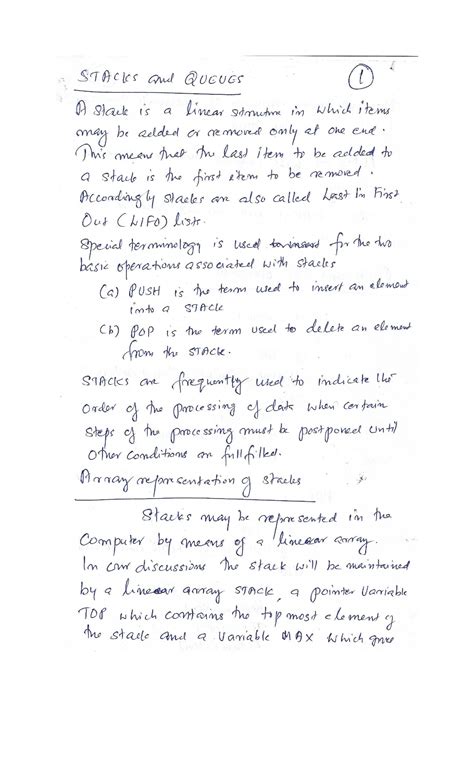 STACKS and QUEUES 1
A stack is a linear structure in which items
may be added or removed only at one end.
This means that the last item to be added to
a stack is the first item to be removed.
Accordingly stacks are also called Last In First
Out (LIFO) lists.
Special terminology is used to insert for the two
basic operations associated with stacks
(a) PUSH is the term used to insert an element
into a STACK
(b) POP is the term used to delete an element
from the STACK.
STACKS are frequently used to indicate the
Order of the processing of data when certain
Steps of the processing must be postponed until
Other conditions are fullfilled.
Array representation of stacks
Stacks may be represented in the
Computer by means of a linear array.
In our discussions the stack will be maintained
by a linear array STACK, a pointer variable
TOP which contains the top most element of
the stack and a variable MAX which gives